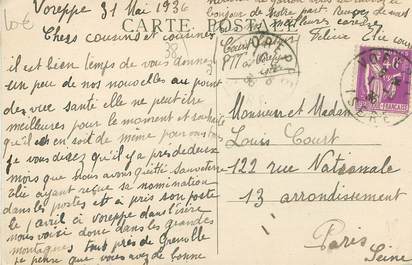 Voreppe 31 Mai 1936
CARTE POSTALE
Chers cousins et cousines
il est bien temps de vous donner
un peu de nos nouvelles au point
de vue santé elle ne peut être
meilleures pour le moment et souhaite
qu'il en soit de même pour vous
je vous disez qu'il y a près de deux
mois que nous avons quitté Sauveterre
Elie ayant reçue se nomination
dans les postes et à pris son poste
le 1 avril à Voreppe dans l'isère
nous voisi donc dans les grandes
montagnes tout près de Grenoble
je pense que vous avez de bonne
de notre part Reçevez
meilleures caresses
Elie
VOREPPE
ISERE
FRANÇAISE
Monsieur et Madame
Louis Court
122 rue Nationale
13 arrondissement
Paris
Seine